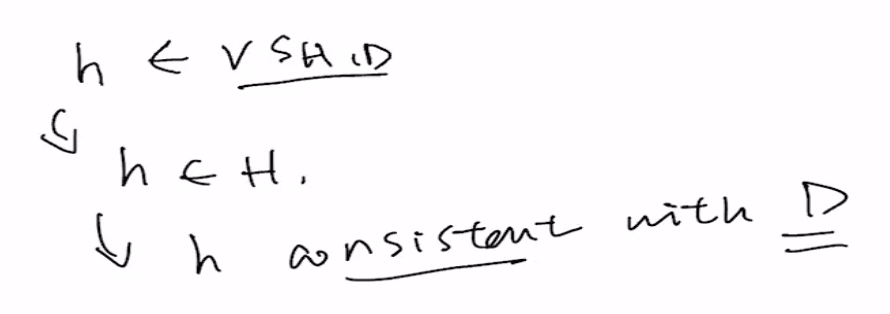 h ∈ VSH,D
h ∈ H.
h consistent with D